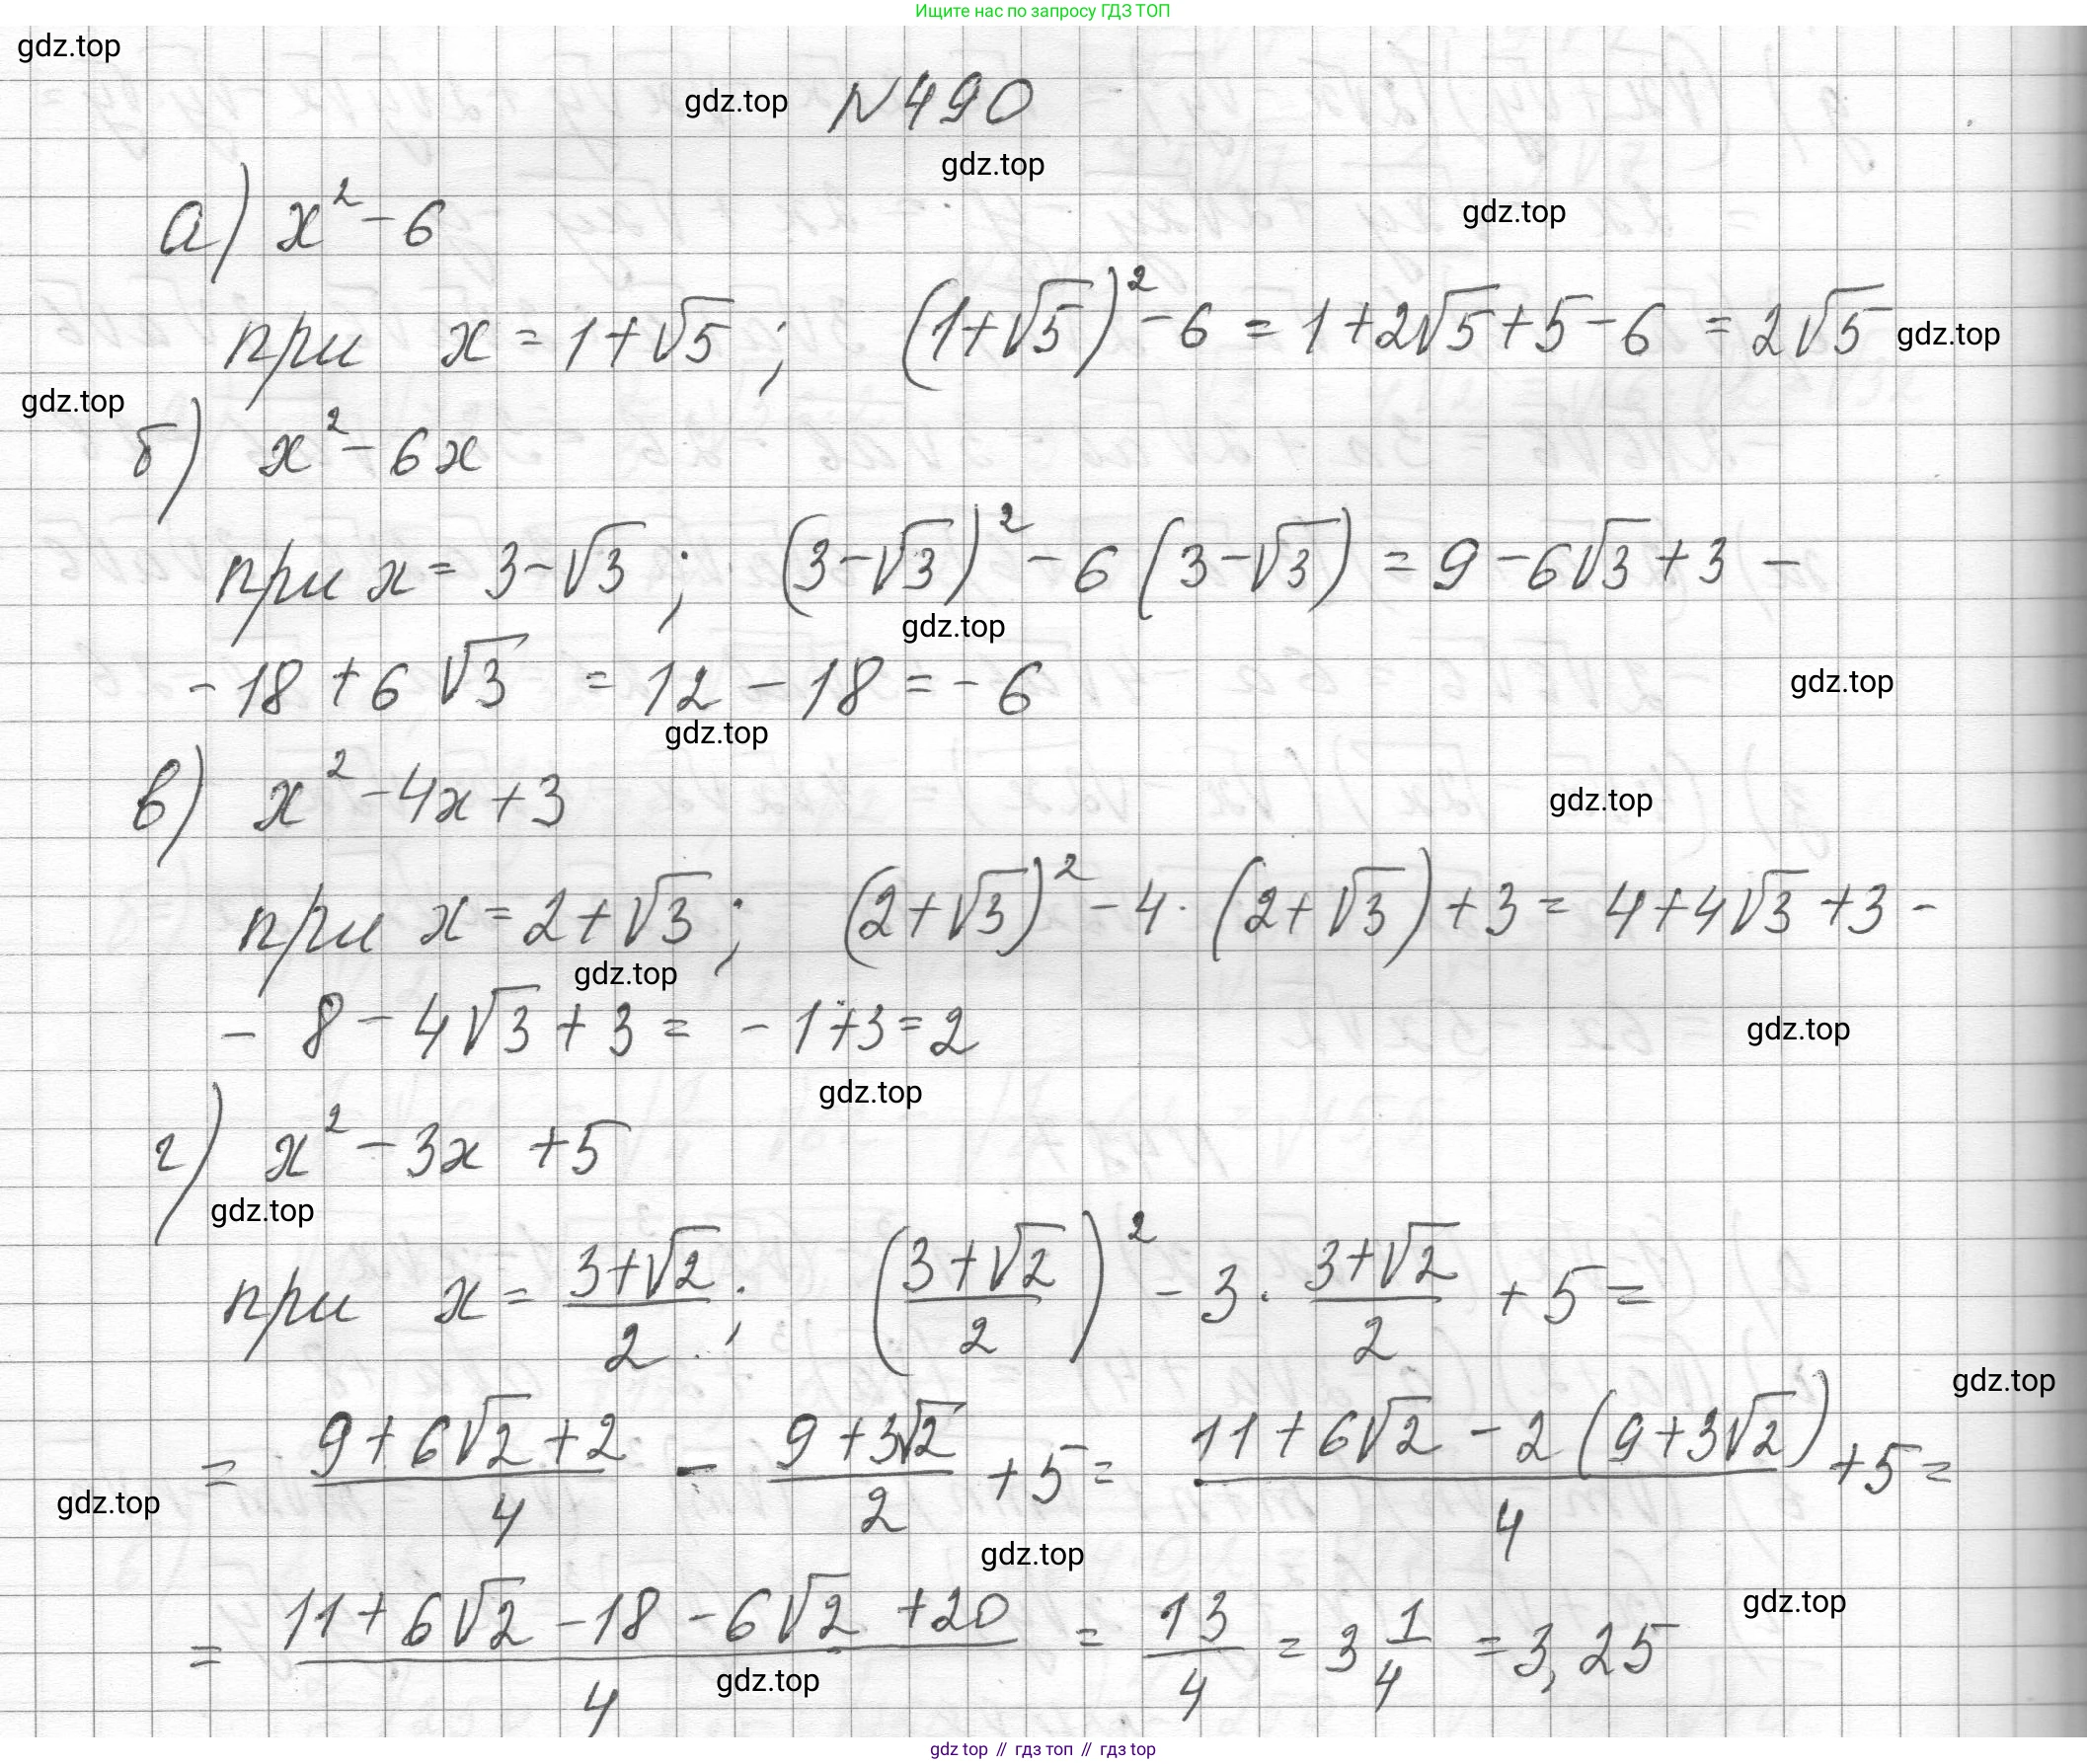 Ищите нас по запросу ГДЗ ТОП
gdz.top
gdz.top N490
gdz.top
gdz.top
а) x² - 6
при x = 1 + √5 ; (1 + √5)² - 6 = 1 + 2√5 + 5 - 6 = 2√5 gdz.top
gdz.top
б) x² - 6x
при x = 3 - √3 ; (3 - √3)² - 6 (3 - √3) = 9 - 6√3 + 3 -
gdz.top
- 18 + 6 √3 = 12 - 18 = - 6
gdz.top
gdz.top
в) x² - 4x + 3
gdz.top
при x = 2 + √3 ; (2 + √3)² - 4 · (2 + √3) + 3 = 4 + 4√3 + 3 -
gdz.top
- 8 - 4√3 + 3 = - 1 + 3 = 2
gdz.top
gdz.top
г) x² - 3x + 5
gdz.top
при x = (3 + √2)/2 ; ((3 + √2)/2)² - 3 · (3 + √2)/2 + 5 =
gdz.top
= (9 + 6√2 + 2)/4 - (9 + 3√2)/2 + 5 = (11 + 6√2 - 2 (9 + 3√2))/4 + 5 =
gdz.top
gdz.top
gdz.top
= (11 + 6√2 - 18 - 6√2 + 20)/4 = 13/4 = 3 1/4 = 3,25
gdz.top
gdz top // гдз топ // гдз top